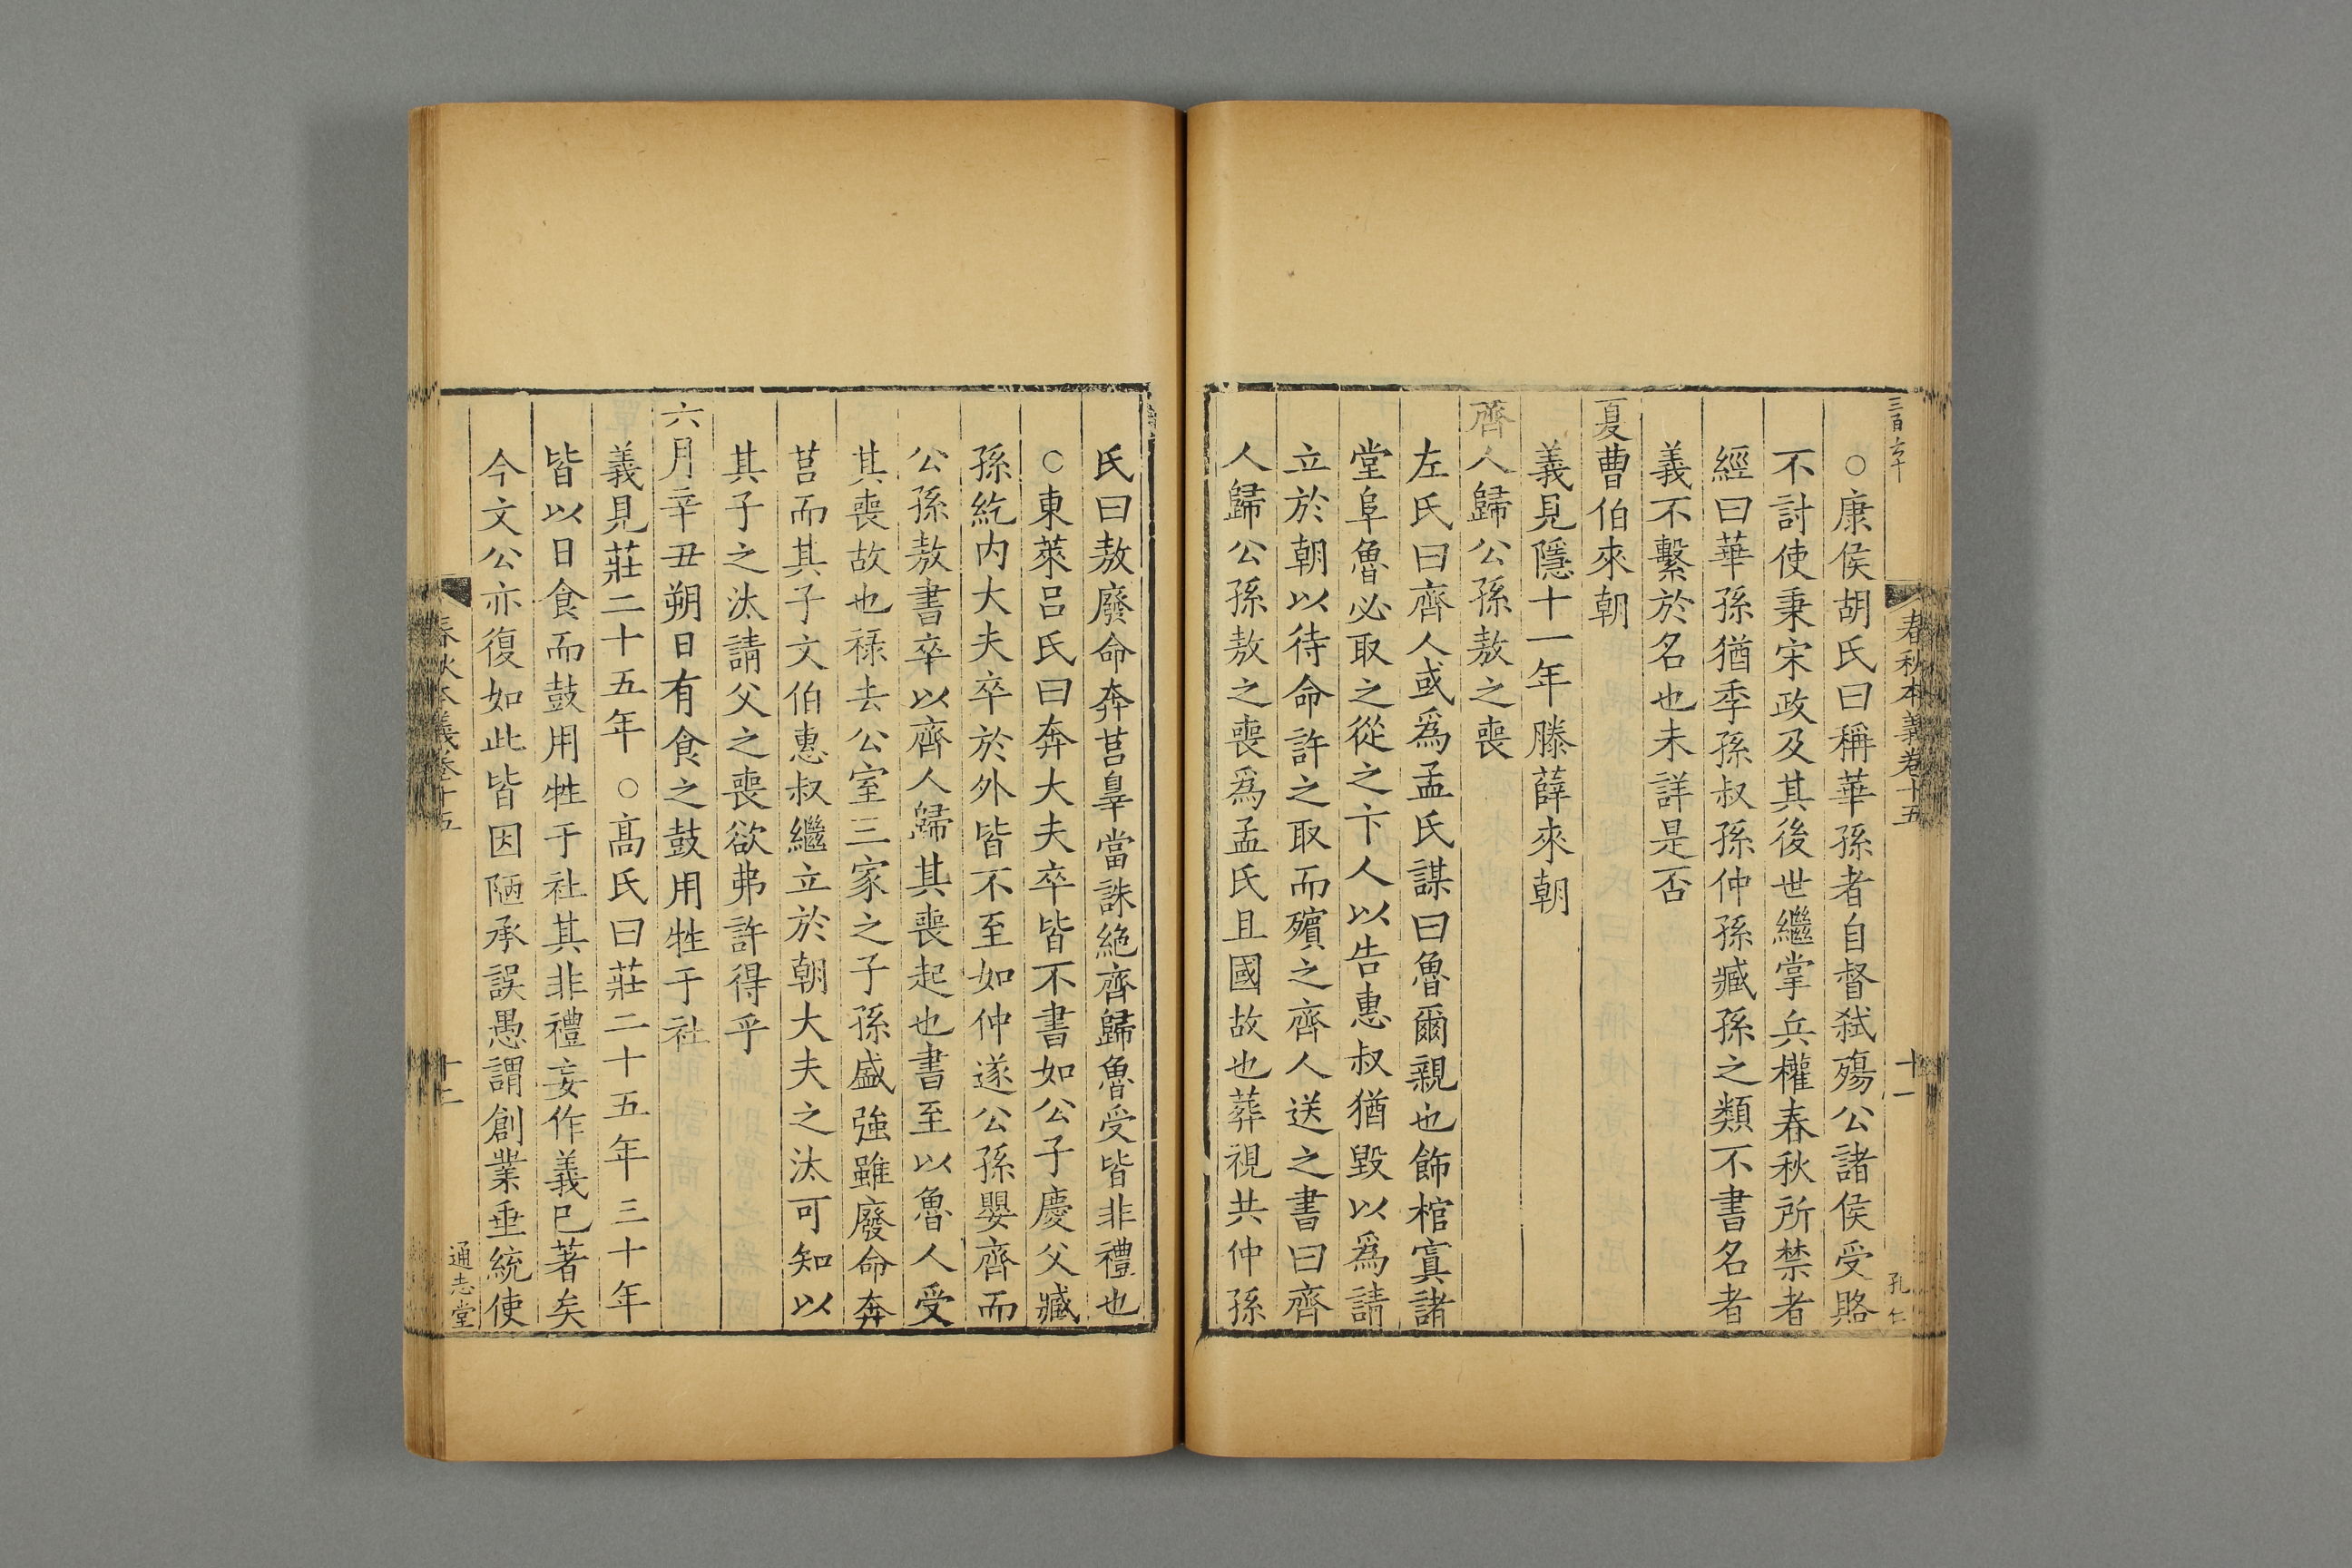 春秋本義卷十五
十一
孔仁
○康侯胡氏曰稱華孫者自督弑殤公諸侯受賂
不討使秉宋政及其後世繼掌兵權春秋所禁者
經曰華孫猶季孫叔孫仲孫臧孫之類不書名者
義不繫於名也未詳是否
夏曹伯來朝
義見隱十一年滕薛來朝
齊人歸公孫敖之喪
左氏曰齊人或爲孟氏謀曰魯爾親也飾棺寘諸
堂阜魯必取之從之卞人以告惠叔猶毀以爲請
立於朝以待命許之取而殯之齊人送之書曰齊
人歸公孫敖之喪爲孟氏且國故也葬視共仲孫
氏曰敖廢命奔莒辠當誅絶齊歸魯受皆非禮也
○東萊呂氏曰奔大夫卒皆不書如公子慶父臧
孫紇内大夫卒於外皆不至如仲遂公孫嬰齊而
公孫敖書卒以齊人歸其喪起也書至以魯人受
其喪故也禄去公室三家之子孫盛強雖廢命奔
莒而其子文伯惠叔繼立於朝大夫之汰可知以
其子之汰請父之喪欲弗許得乎
六月辛丑朔日有食之鼓用牲于社
義見莊二十五年○高氏曰莊二十五年三十年
皆以日食而鼓用牲于社其非禮妄作義已著矣
今文公亦復如此皆因陋承誤愚謂創業垂統使
春秋本義卷十五
十二
通志堂